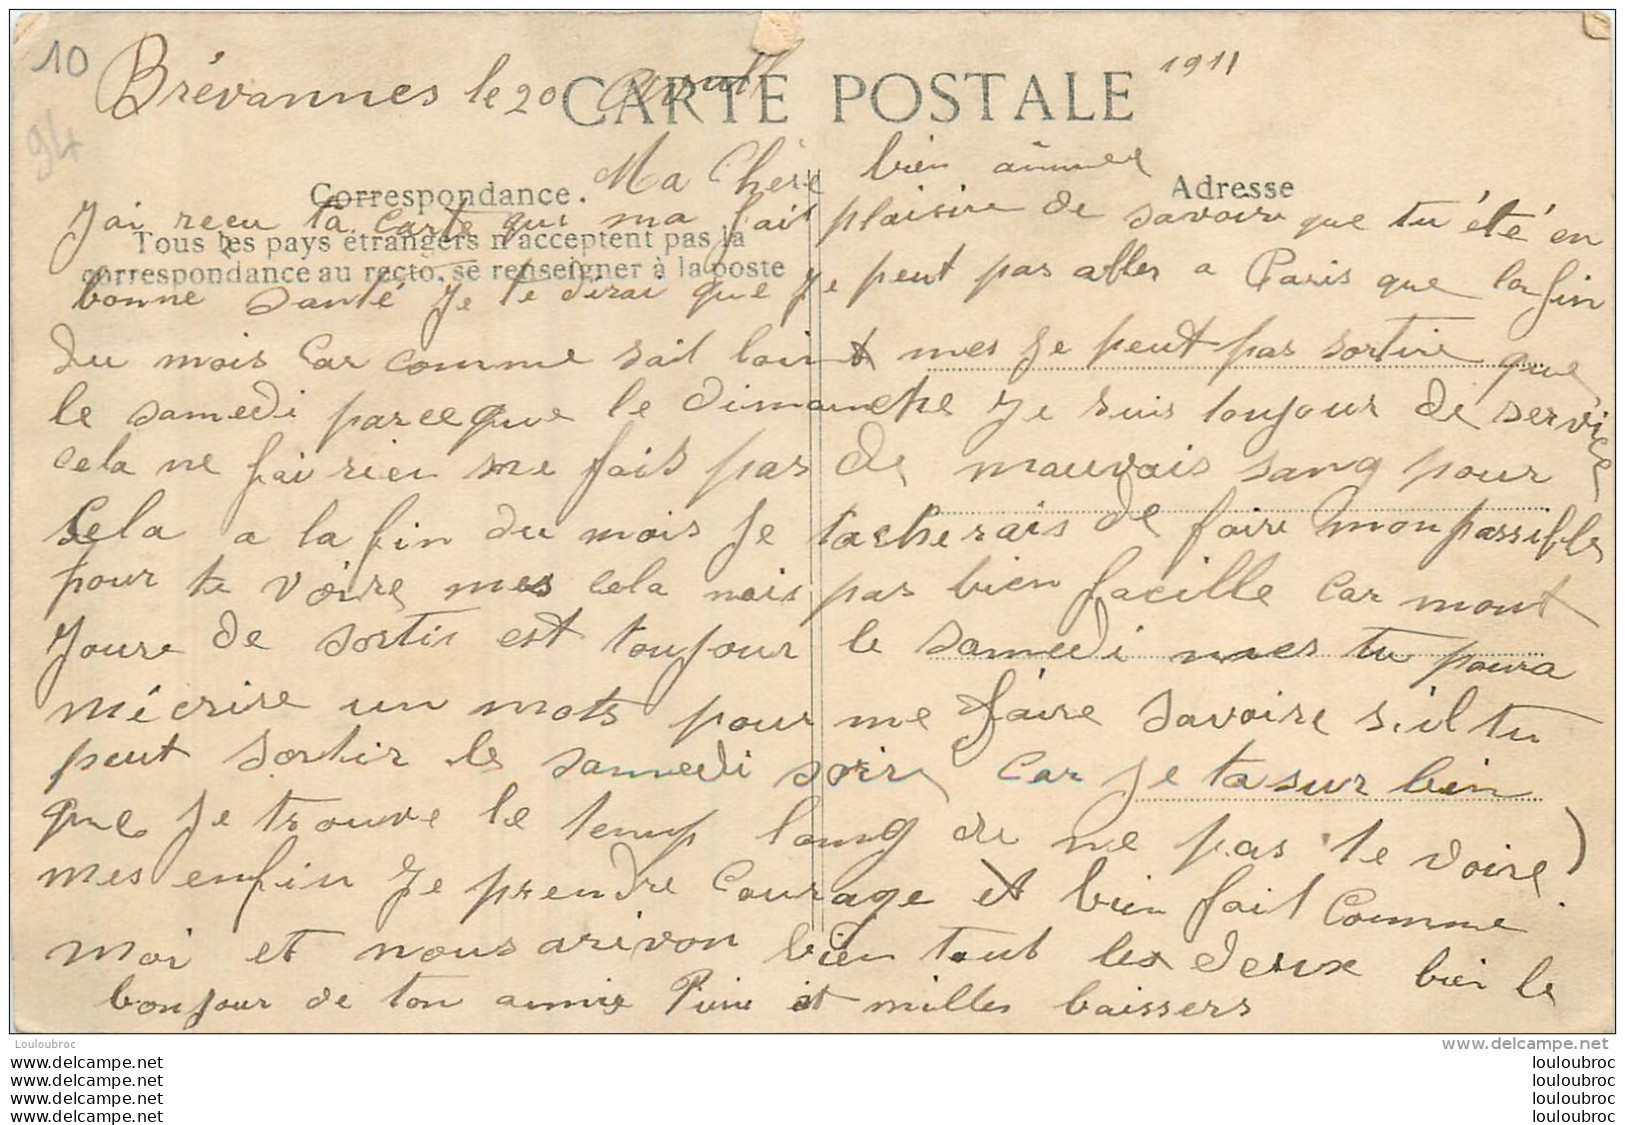 10
94
Brévannes le 20
CARTE POSTALE
1911
Ma Chère bien aimmee
Correspondance.
Adresse
J'ai reçu ta carte qui ma fait plaisire de savoire que tu été en
Tous les pays étrangers n'acceptent pas la
correspondance au recto, se renseigner à la poste
bonne santé Je te dirai que Je peut pas aller a Paris que la fin
du mois Car comme sait loint mes Je peut pas sortire que
le samedi parceque le dimanche Je suis toujour de service
cela ne fai rien me fais pas de mauvais sang pour
Cela a la fin du mois Je tacherais de faire mon possible
pour te voire mes cela nais pas bien facille Car mont
Joure de sortis est toujour le samedi mes tu poura
mécrire un mots pour me faire savoire s'il tu
peut sortir le samedi soire Car Je ta sur bien
que Je trouve le temp long de ne pas te voire
mes enfin Je prendre Courage et bien fait Comme
moi et nous arivon bien tout les deux bien le
bonjour de ton amie Pierre et milles baissers
Louloubroc
www.delcampe.net
www.delcampe.net louloubroc
www.delcampe.net louloubroc
www.delcampe.net louloubroc
www.delcampe.net louloubroc